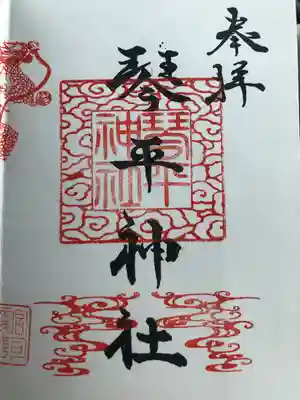 奉拝
琴平神社
琴平神社